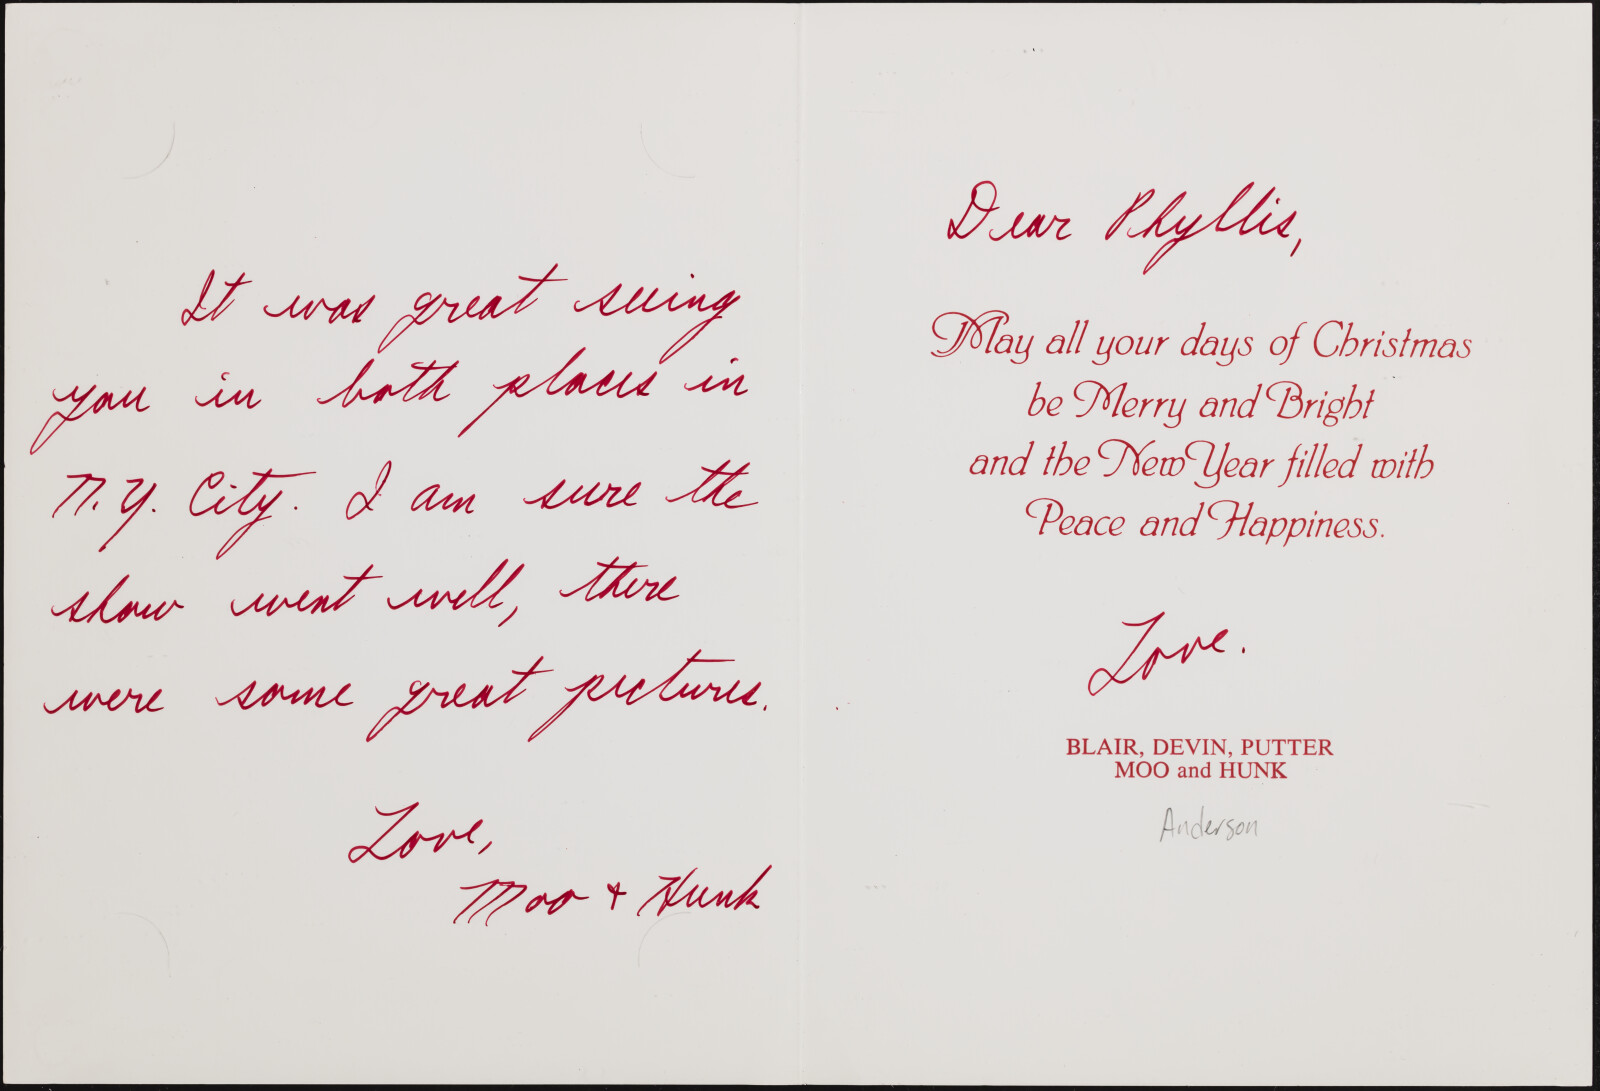 It was great seeing
you in both places in
N.Y. City. I am sure the
show went well, there
were some great pictures.
Love,
Moo + Hunk
Dear Phyllis,
May all your days of Christmas
be Merry and Bright
and the New Year filled with
Peace and Happiness.
Love.
BLAIR, DEVIN, PUTTER
MOO and HUNK
Anderson